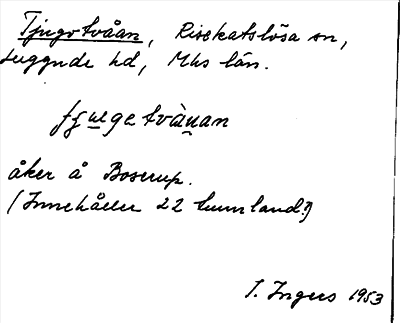 Tjugotvåan, Risekatslösa sn,
Luggude hd, Mhs län.
åker å Boserup.
(Innehåller 22 tunnland?)
I. Ingers 1953